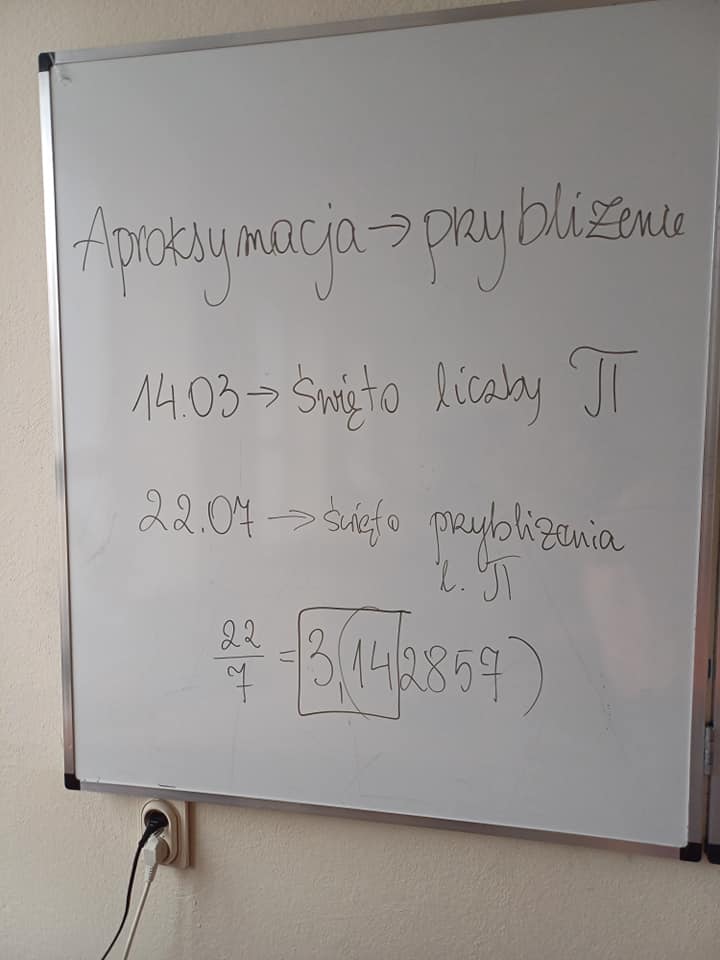 Aproksymacja → przybliżenie
14.03 → Święto liczby π
22.07 → święto przybliżenia
l. π
22/7 = 3,(142857)